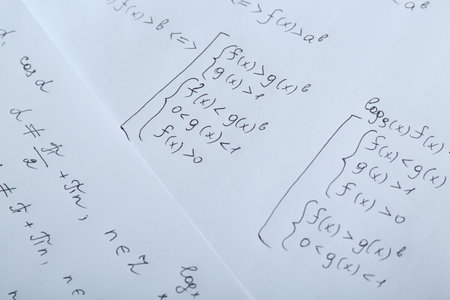 f(x) > b <=>
<=> f(x) > a^b
< a^b
f(x) > g(x)^b
g(x) > 1
f(x) < g(x)^b
0 < g(x) < 1
f(x) > 0
log_g(x) f(x)
f(x) < g(x)
g(x) > 1
f(x) > 0
f(x) > g(x)^b
0 < g(x) < 1
cos α
α ≠ π/2 + πn, n ∈ Z
≠ π + πn, n ∈
log_x